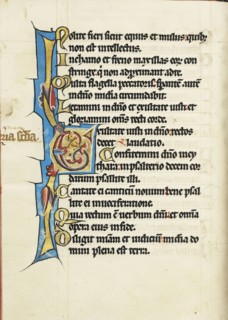 Nolite fieri sicut equus et mulus quib;
non est intellectus.
In chamo et freno maxillas eoꝝ con
stringe qͥ non approximant ad te.
Multa flagella peccatoris sperantē autē
in dño mīa circumdabit.
Letamini in dño et exultate iusti et
gloriamini oms̄ recti corde.
Exultate iusti in dño rectos
decet laudatio.
Confitemini dño in cy
thara in psalterio decem cor
darum psallite illi.
Cantate ei canticū novum bene psal
lite ei in vociferatione.
Quia rectum ē verbum dñi et omīa
opera eius in fide.
Diligit mīam et iudiciū mīa do
mini plena est terra.